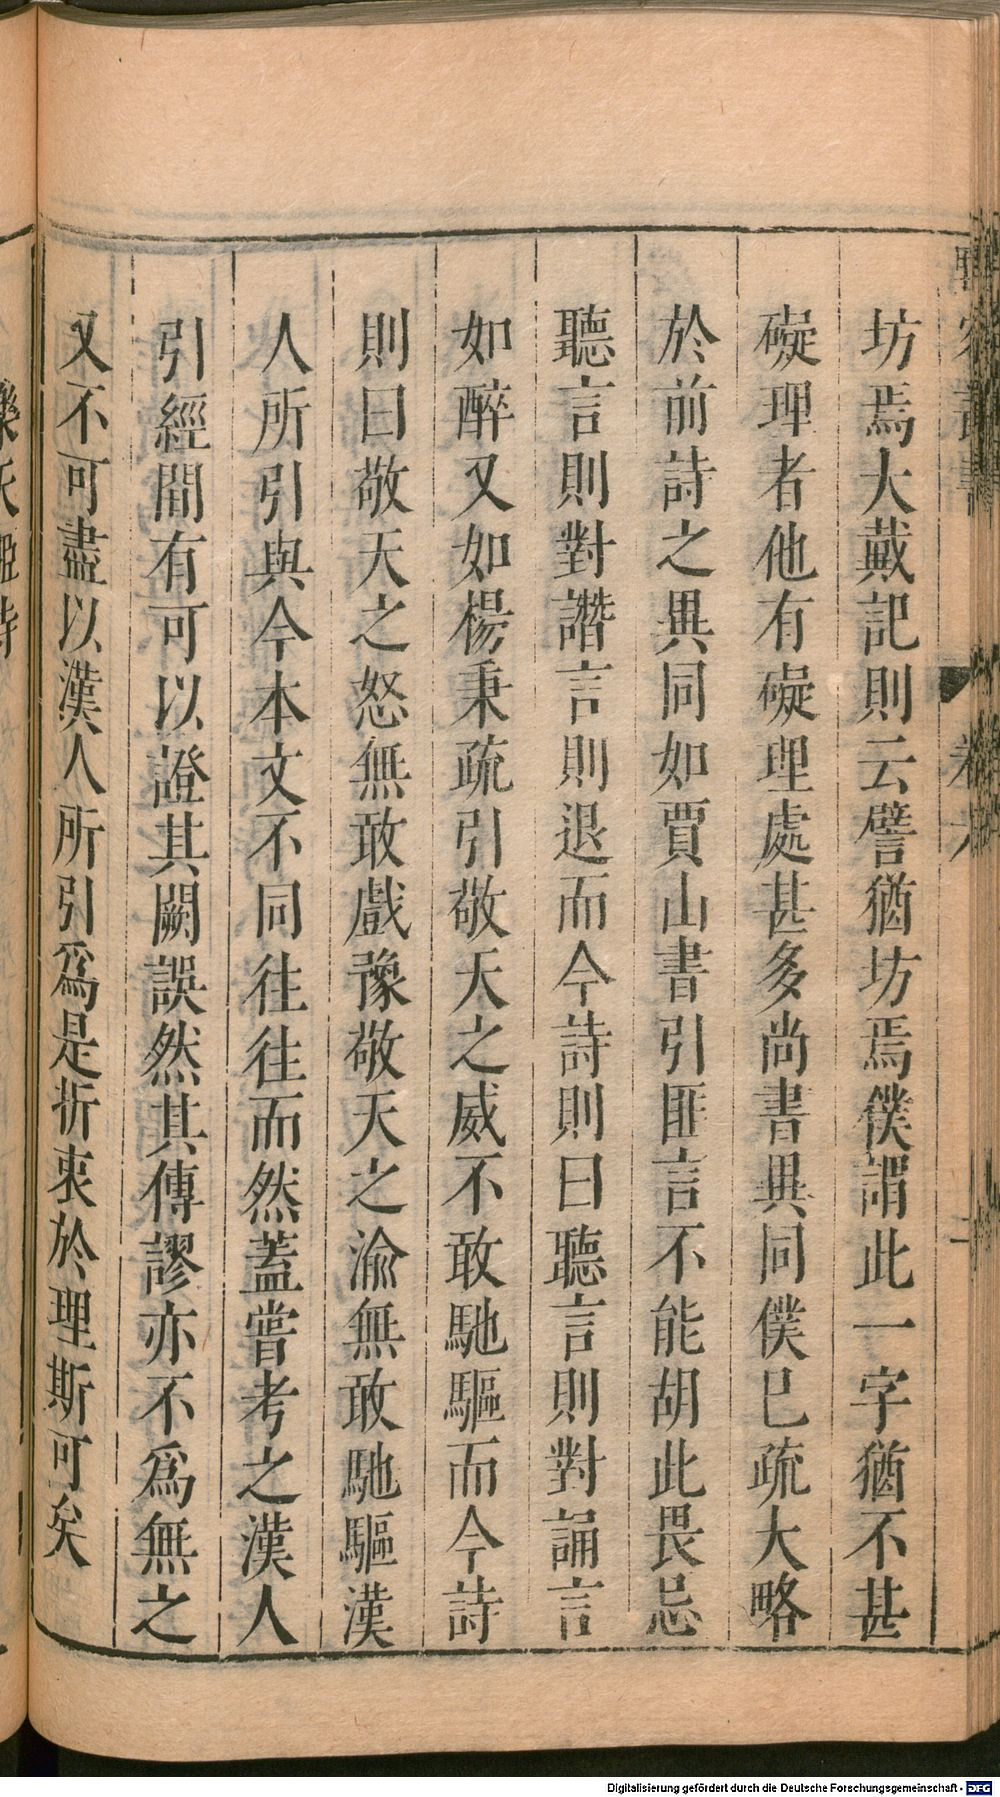 坊焉大戴記則云譬猶坊焉僕謂此一字猶不甚
礙理者他有礙理處甚多尚書異同僕已疏大略
於前詩之異同如賈山書引匪言不能胡此畏忌
聽言則對譖言則退而今詩則曰聽言則對誦言
如醉又如楊秉疏引敬天之威不敢馳驅而今詩
則曰敬天之怒無敢戲豫敬天之渝無敢馳驅漢
人所引與今本文不同往往而然蓋嘗考之漢人
引經間有可以證其闕誤然其傳謬亦不爲無之
又不可盡以漢人所引爲是折衷於理斯可矣
Digitalisierung gefördert durch die Deutsche Forschungsgemeinschaft - DFG